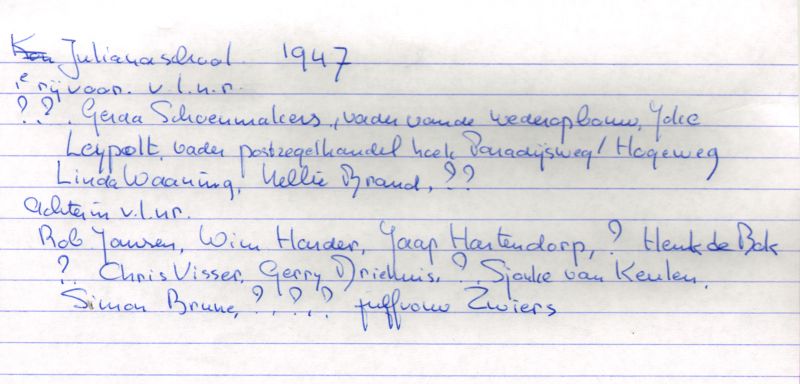 Julianaschool 1947
1e rij voor. v.l.n.r.
? ?. Gerda Schoenmakers, vader van de wederopbouw, Ycke
Leypolt, vader postzegelhandel hoek Paradijsweg/Hogeweg
Linda Waaning, Nellie Brand, ??
Achterin v.l.n.r.
Rob Jansen, Wim Harder, Jaap Hartendorp, ? Henk de Bok
? Chris Visser, Gerry Driehuis, ? Sjouke van Keulen,
Simon Brune, ? ? ? juffrouw Zwiers